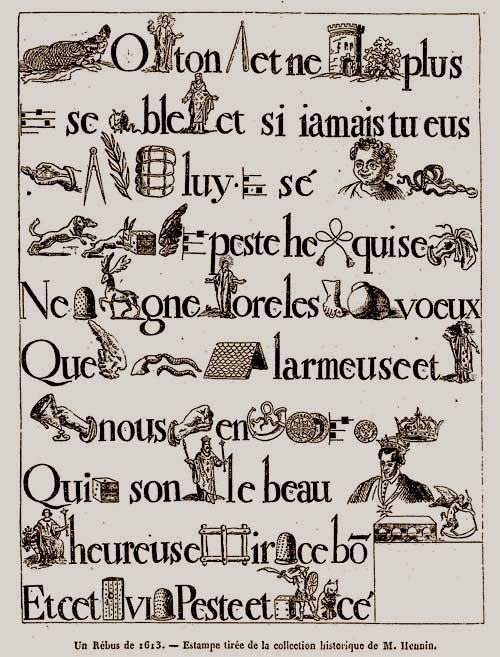 O ton et ne plus
se ble et si iamais tu eus
luy. sé
peste he quise
Ne gne ore les voeux
Que larmeuse et
nous en
Qui son le beau
heureuse ir ce bō
Et cet vi Peste et cé
Un Rébus de 1613. — Estampe tirée de la collection historique de M. Hennin.